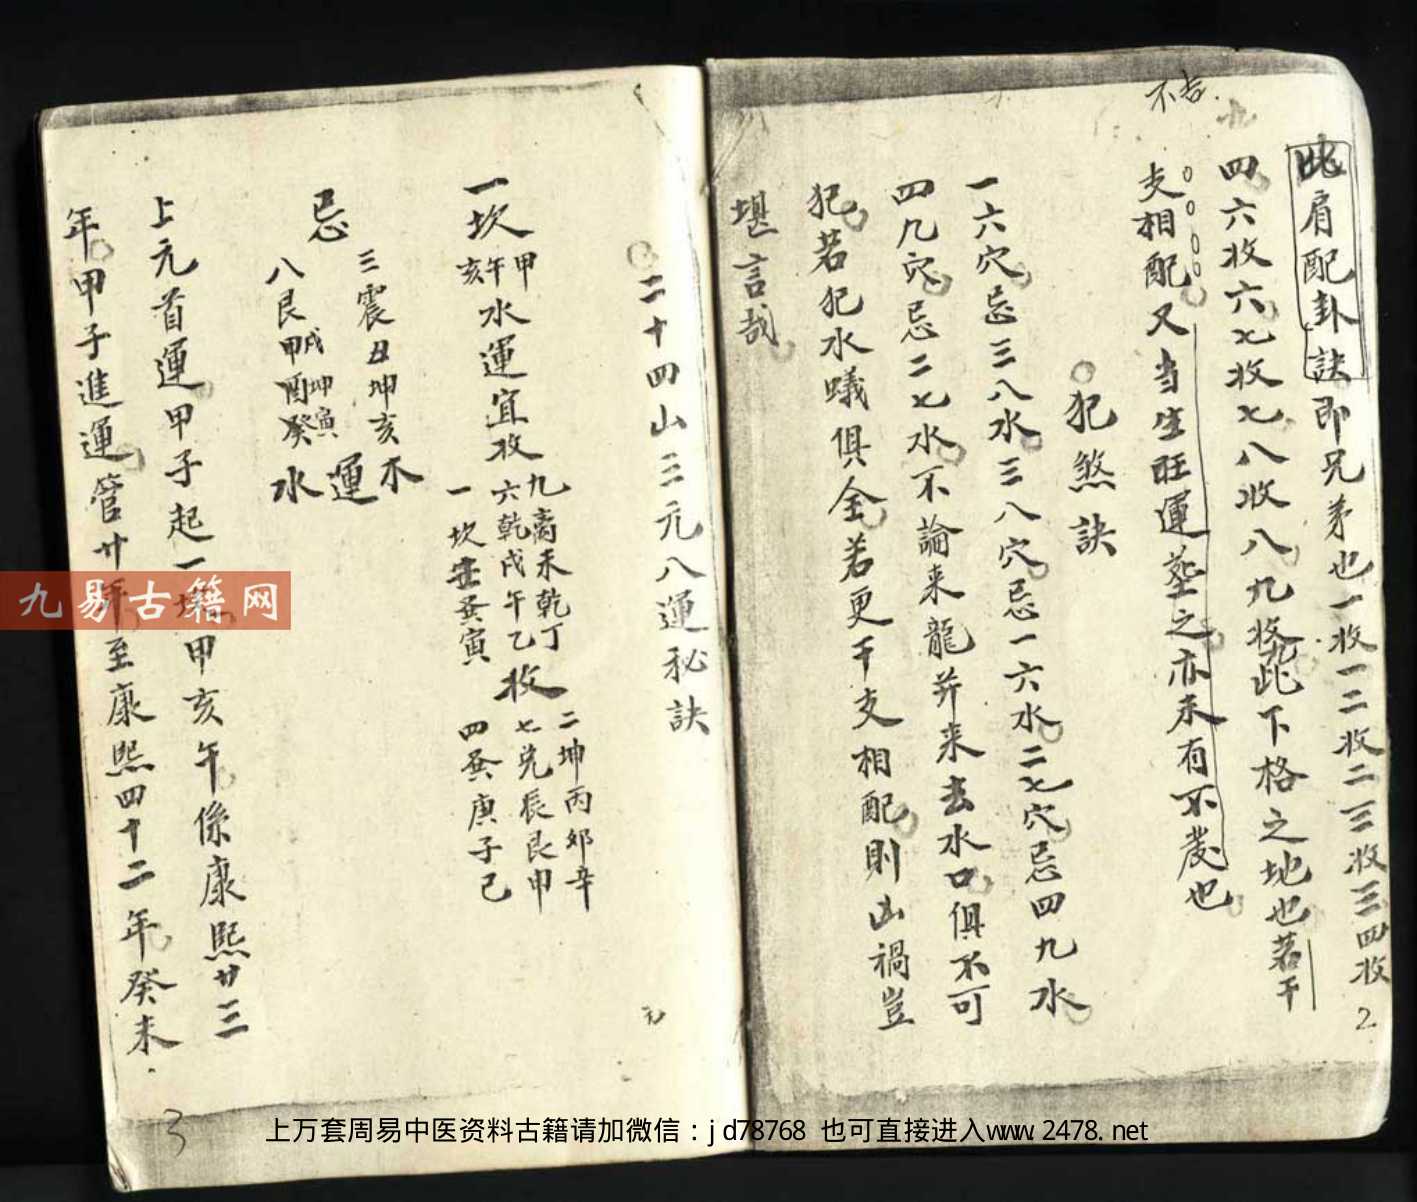 不吉
此肩配卦訣即兄弟也一收一二收二三收三四收
四六收六七收七八收八九收九此下格之地也若干
支相配又当生旺運塟之亦未有不發也
犯煞訣
一六穴忌三八水三八穴忌一六水二七穴忌四九水
四九穴忌二七水不論来龍并来去水口俱不可
犯若犯水蟻俱全若更干支相配則凶禍豈
堪言哉
2
二十四山三元八運秘訣
一坎
甲午亥
水運宜收
九离未乾丁
六乾戌午乙
一坎壬𢀩寅
收
二坤丙卯辛
七兑辰艮申
四巽庚子己
忌
三震丑坤亥
八艮甲酉癸
戌坤寅
木運水
上元首運甲子起一坎甲亥午係康熙廿三
年甲子進運管廿年至康熙四十二年癸未
3
九易古籍网
上万套周易中医资料古籍请加微信：jd78768 也可直接进入www.2478.net